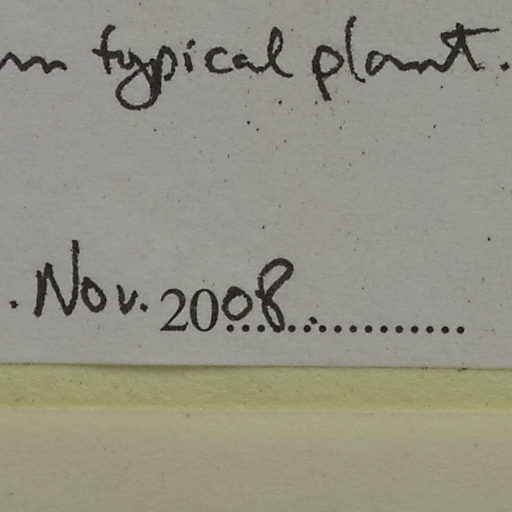 typical plant.
. Nov. 2008.